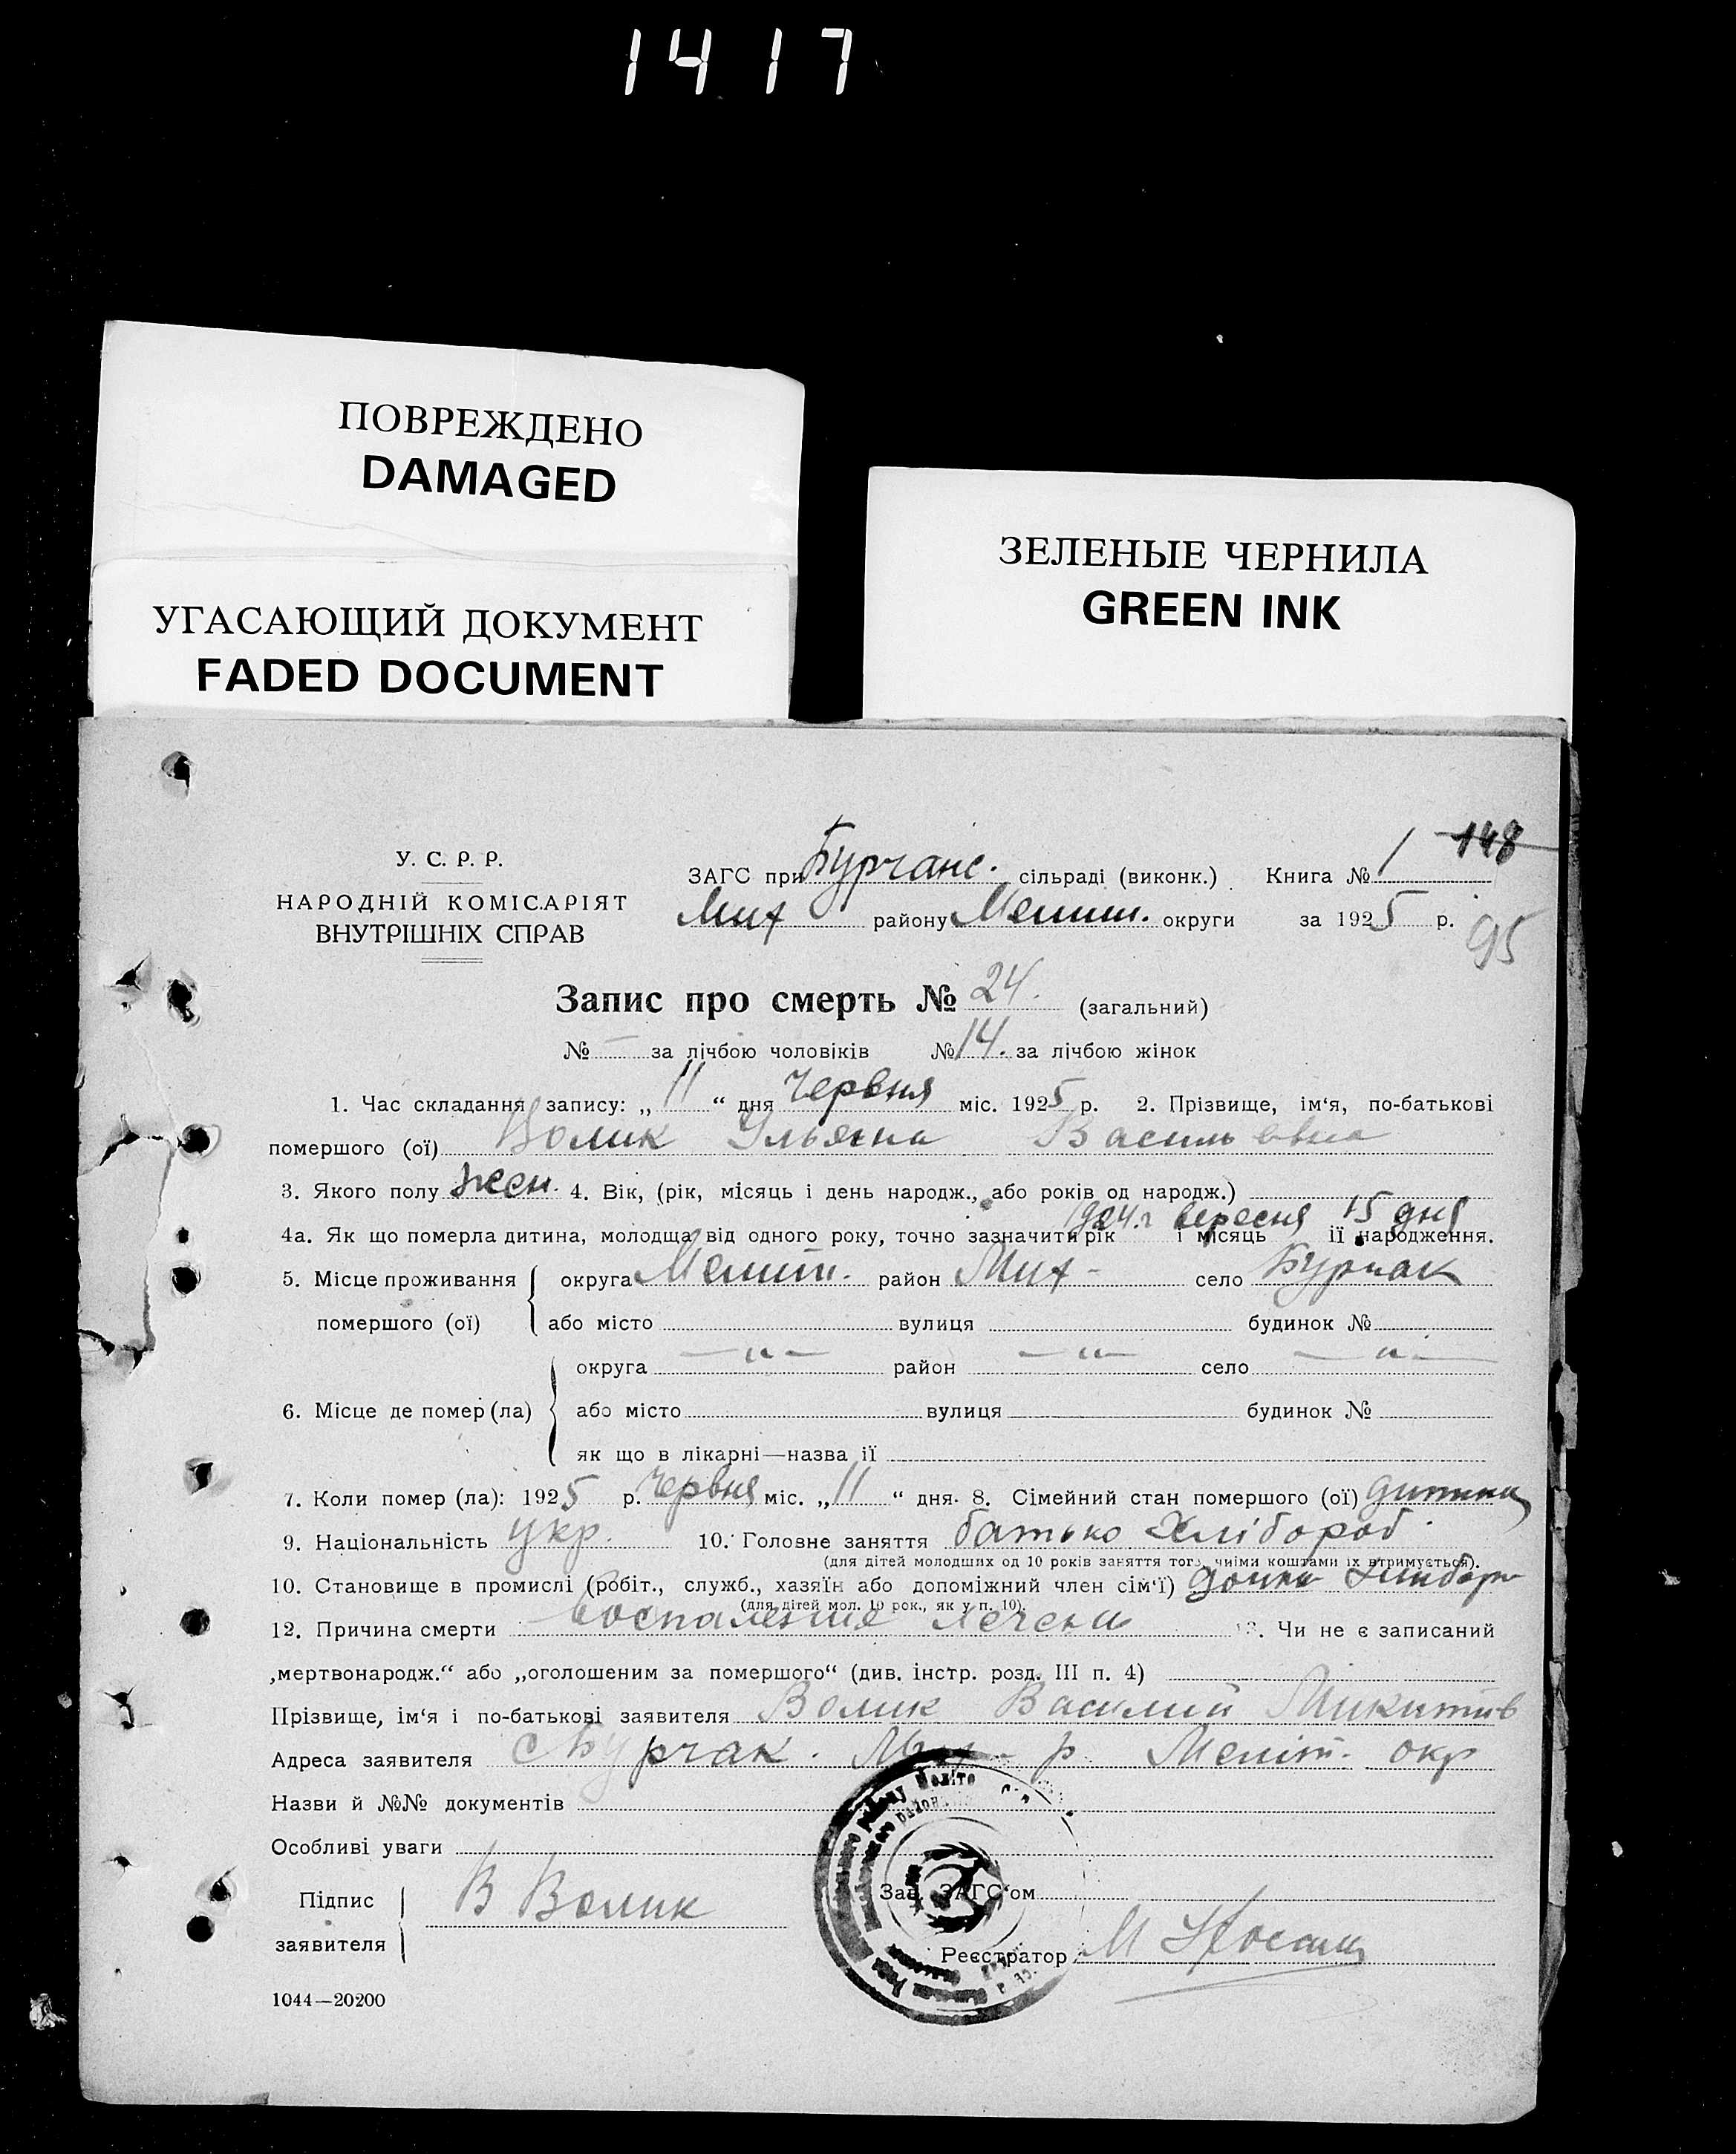 1417
ПОВРЕЖДЕНО
DAMAGED
УГАСАЮЩИЙ ДОКУМЕНТ
FADED DOCUMENT
ЗЕЛЕНЫЕ ЧЕРНИЛА
GREEN INK
148
У. С. Р. Р.
НАРОДНІЙ КОМІСАРІЯТ
ВНУТРІШНІХ СПРАВ
ЗАГС при Бурчанс. сільраді (виконк.) Книга № 1
Мих району Меліт. округи за 1925 р.
95
Запис про смерть № 24. (загальний)
№ — за лічбою чоловіків № 14. за лічбою жінок
1. Час складання запису: „ 11 “ дня Червня міс. 1925 р. 2. Прізвище, ім‘я, по-батькові
помершого (ої) Волик Ульяна Васильевна
3. Якого полу жен. 4. Вік, (рік, місяць і день народж., або років од народж.)
1924.г вересня 15 дня
4а. Як що померла дитина, молодша від одного року, точно зазначити рік і місяць її народження.
5. Місце проживання округа Меліт. район Мих - село Бурчак
помершого (ої) або місто вулиця будинок №
округа —„— район —„— село —„—
6. Місце де помер (ла) або місто вулиця будинок №
як що в лікарні—назва її
7. Коли помер (ла): 1925 р. Червня міс. „ 11 “ дня. 8. Сімейний стан помершого (ої) дитина
9. Національність укр. 10. Головне заняття батько Хлібороб
(для дітей молодших од 10 років заняття того, чиїми коштами їх втримується).
10. Становище в промислі (робіт., служб., хазяїн або допоміжний член сім‘ї) дочка
(для дітей мол. 10 рок., як у п. 10).
12. Причина смерти воспаление печени 13. Чи не є записаний
„мертвонародж.“ або „оголошеним за помершого“ (див. інстр. розд. III п. 4)
Прізвище, ім‘я і по-батькові заявителя Волик Василий Микитив
Адреса заявителя с Бурчак. Мих - р Меліт. окр
Назви й №№ документів
Особливі уваги
Підпис заявителя В Волик
Зав. ЗАГС‘ом
Реєстратор М
1044—20200